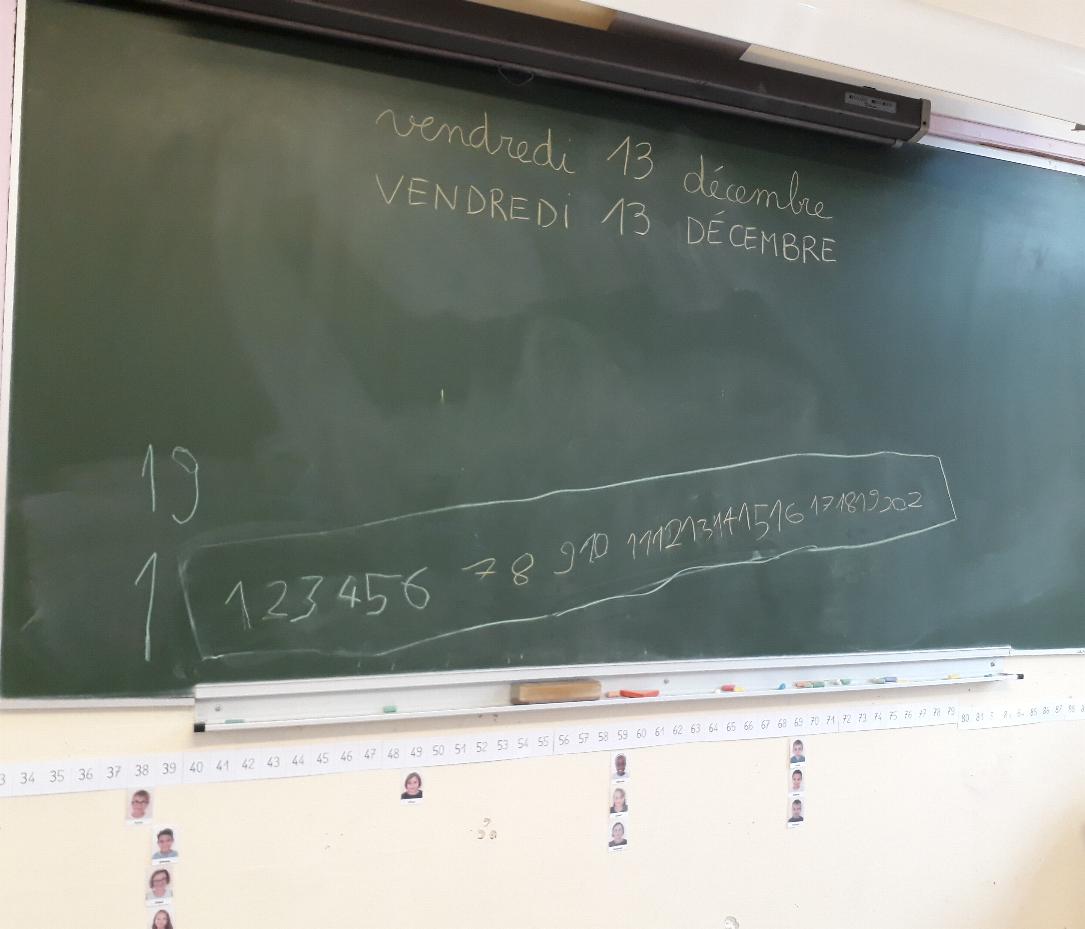 vendredi 13 décembre
VENDREDI 13 DÉCEMBRE
19
1
1 2 3 4 5 6 7 8 9 10 11 12 13 14 15 16 17 18 19 02
34 35 36 37 38 39 40 41 42 43 44 45 46 47 48 49 50 51 52 53 54 55 56 57 58 59 60 61 62 63 64 65 66 67 68 69 70 71 72 73 74 75 76 77 78 79 80 81 85 86 87 88